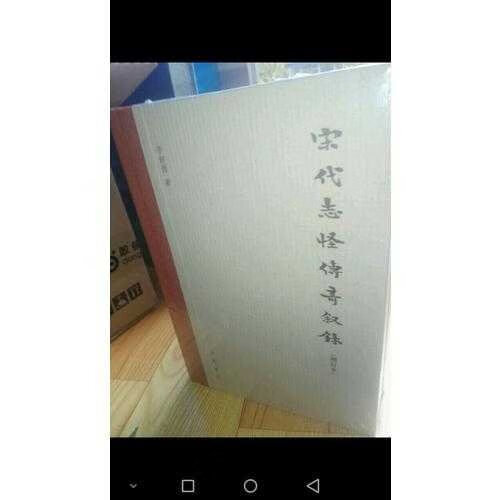 宋代志怪傳奇叙錄
（增訂本）
李劍國 著
中華書局